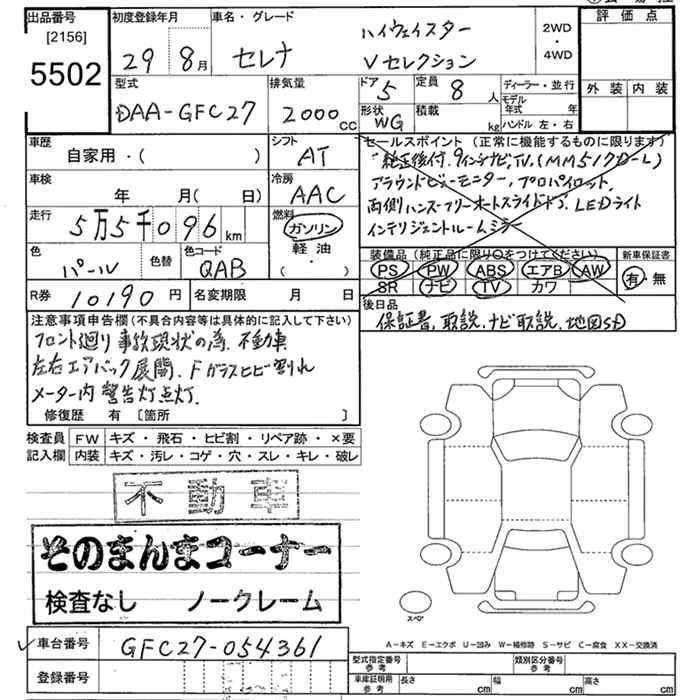 出品番号
[2156]
5502
初度登録年月
29 8月
車名・グレード
セレナ
ハイウェイスター
Vセレクション
2WD
・
4WD
評価点
外装 内装
型式
DAA-GFC27
排気量
2000cc
ドア
5
定員
8人
形状
WG
積載
kg
ディーラー・並行
モデル年式 年
ハンドル 左・右
車歴
自家用・( )
シフト
AT
車検
年 月( 日)
冷房
AAC
走行
5万5千096km
燃料
ガソリン
・
軽油
・
色
パール
色替
色コード
QAB
R券 10190円
名変期限 月 日
セールスポイント(正常に機能するものに限ります)
純正後付.9インチナビTV.(MM517D-L)
アラウンドビューモニター.プロパイロット.
両側ハンズフリーオートスライドドア.LEDライト
インテリジェントルームミラー
装備品(純正品に限り〇をつけてください)
PS PW ABS エアB AW
SR ナビ TV カワ
新車保証書
有・無
後日品
保証書.取説.ナビ取説.地図SD
注意事項申告欄(不具合内容等は具体的に記入して下さい)
フロント廻り事故現状の為.不動車
左右エアバック展開.Fガラスヒビ割れ
メーター内警告灯点灯.
修復歴 有 〔箇所 〕
検査員記入欄
FW キズ・飛石・ヒビ割・リペア跡・×要
内装 キズ・汚レ・コゲ・穴・スレ・キレ・破レ
不動車
そのまんまコーナー
検査なし ノークレーム
車台番号 GFC27-054361
登録番号
スペア
A-キズ E-エクボ U-凹み W-補修跡 S-サビ C-腐食 XX-交換済
型式指定番号参考
類別区分番号参考
車庫証明用参考
長さ cm 幅 cm 高さ cm